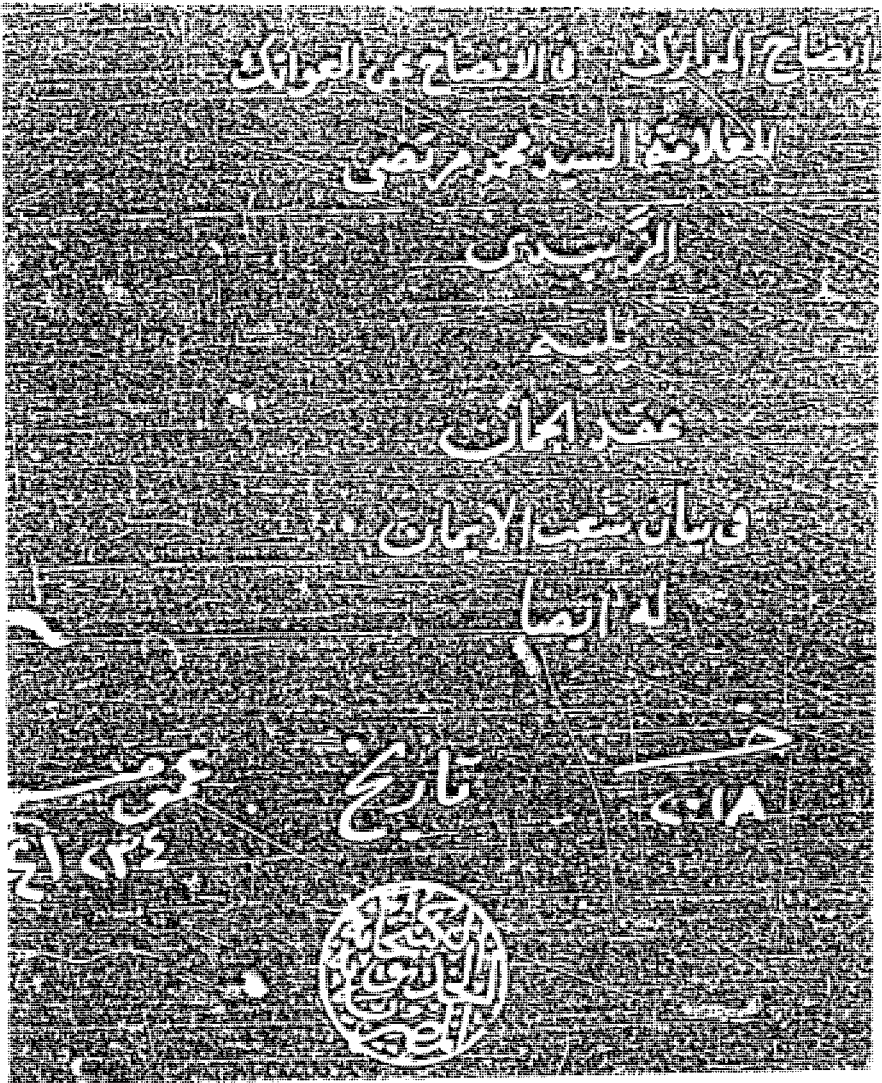 ايضاح المدارك في الافصاح عن العواتك
للعلامة السيد محمد مرتضى
الزبيدى
يليه
عقد الجمان
في بيان شعب الايمان
له ايضا
خصوصية تاريخ عمومية
٢٠١٨
٣٤٢٤١
الكتبخانة الخديوية المصرية